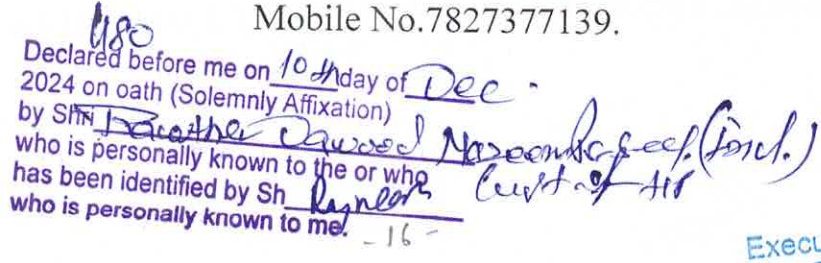 Mobile No.7827377139.
480
Declared before me on 10th day of Dec -
2024 on oath (Solemnly Affixation)
by Shri Dawood
who is personally known to the or who
has been identified by Sh
who is personally known to me.
- 16 -
Execu